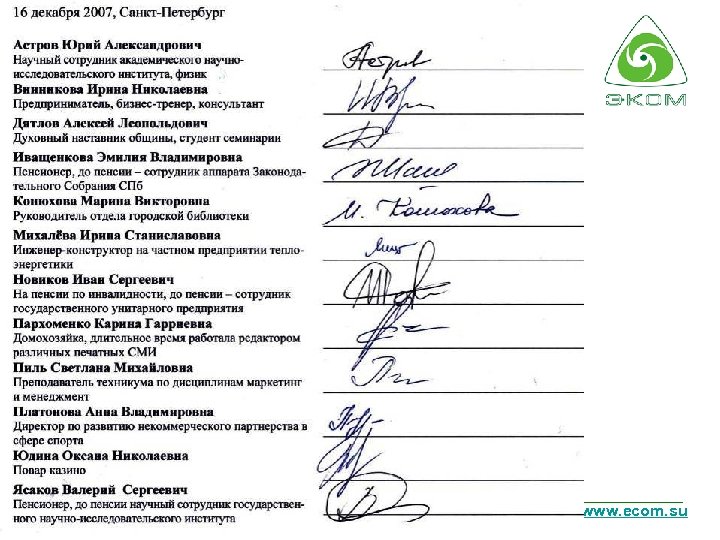 16 декабря 2007, Санкт-Петербург
Астров Юрий Александрович
Научный сотрудник академического научно-
исследовательского института, физик
Винникова Ирина Николаевна
Предприниматель, бизнес-тренер, консультант
Дятлов Алексей Леопольдович
Духовный наставник общины, студент семинарии
Иващенкова Эмилия Владимировна
Пенсионер, до пенсии – сотрудник аппарата Законода-
тельного Собрания СПб
Конюхова Марина Викторовна
Руководитель отдела городской библиотеки
Михалёва Ирина Станиславовна
Инженер-конструктор на частном предприятии тепло-
энергетики
Новиков Иван Сергеевич
На пенсии по инвалидности, до пенсии – сотрудник
государственного унитарного предприятия
Пархоменко Карина Гарриевна
Домохозяйка, длительное время работала редактором
различных печатных СМИ
Пиль Светлана Михайловна
Преподаватель техникума по дисциплинам маркетинг
и менеджмент
Платонова Анна Владимировна
Директор по развитию некоммерческого партнерства в
сфере спорта
Юдина Оксана Николаевна
Повар казино
Ясаков Валерий Сергеевич
Пенсионер, до пенсии научный сотрудник государствен-
ного научно-исследовательского института
Астров
М. Конюхова
ЭКОМ
www.ecom.su